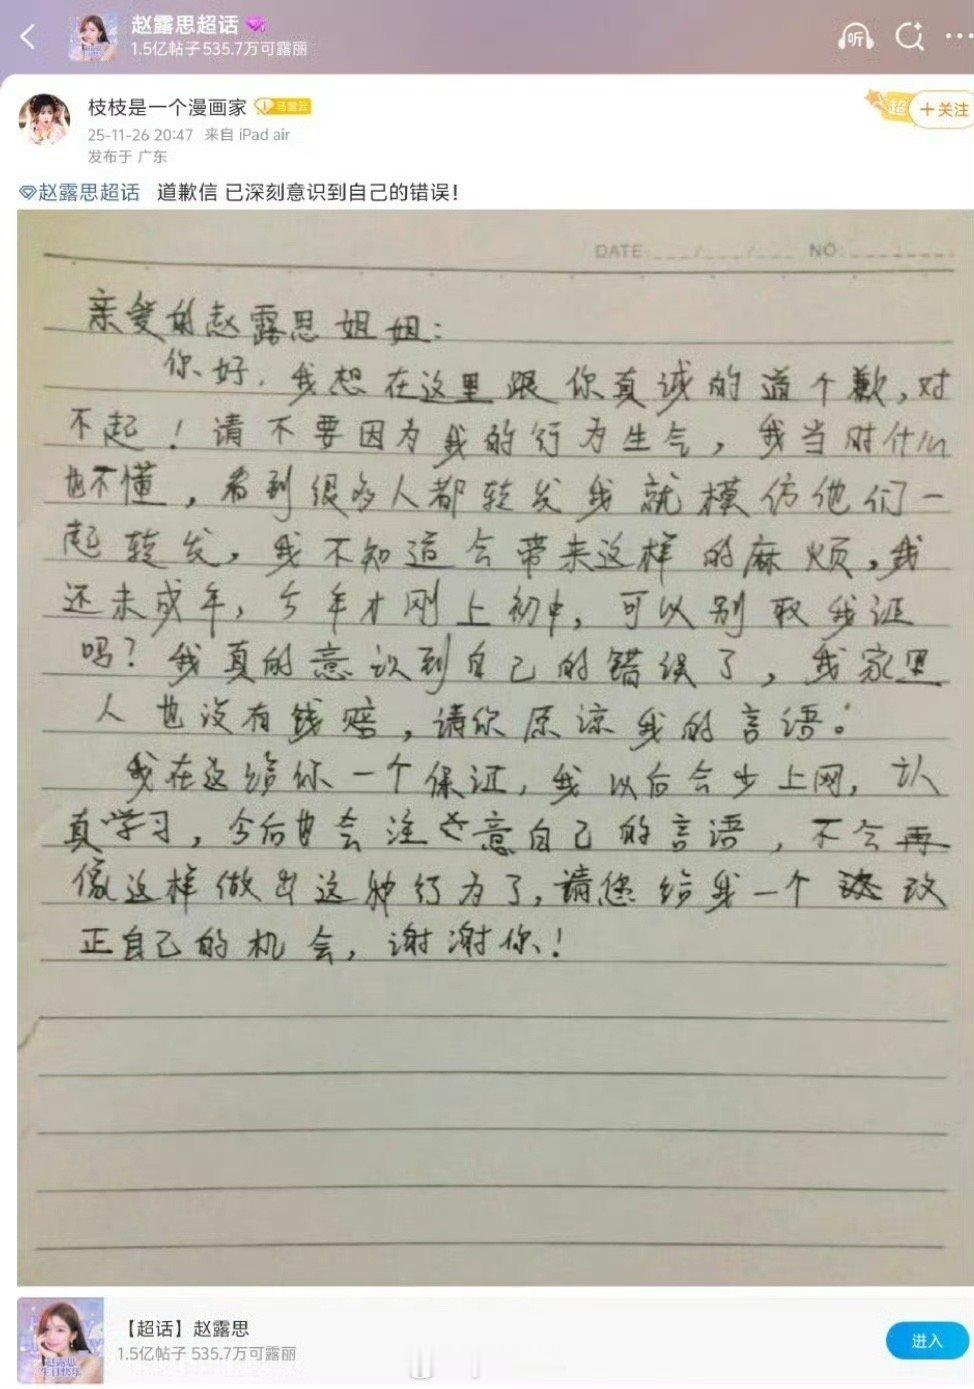 赵露思超话
1.5亿帖子 535.7万可露丽
听
枝枝是一个漫画家
25-11-26 20:47 来自 iPad air
发布于 广东
超 +关注
赵露思超话 道歉信 已深刻意识到自己的错误！
DATE: NO:
亲爱的赵露思姐姐：
你好，我想在这里跟你真诚的道个歉，对
不起！请不要因为我的行为生气，我当时什么
也不懂，看到很多人都转发我就模仿他们一
起转发，我不知道会带来这样的麻烦，我
还未成年，今年才刚上初中，可以别取我证
吗？我真的意识到自己的错误了，我家里
人也没有钱赔，请你原谅我的言语。
我在这给你一个保证，我以后会少上网，认
真学习，今后也会注意自己的言语，不会再
像这样做出这种行为了，请您给我一个改
正自己的机会，谢谢你！
赵露思
生日快乐
【超话】赵露思
1.5亿帖子 535.7万可露丽
进入